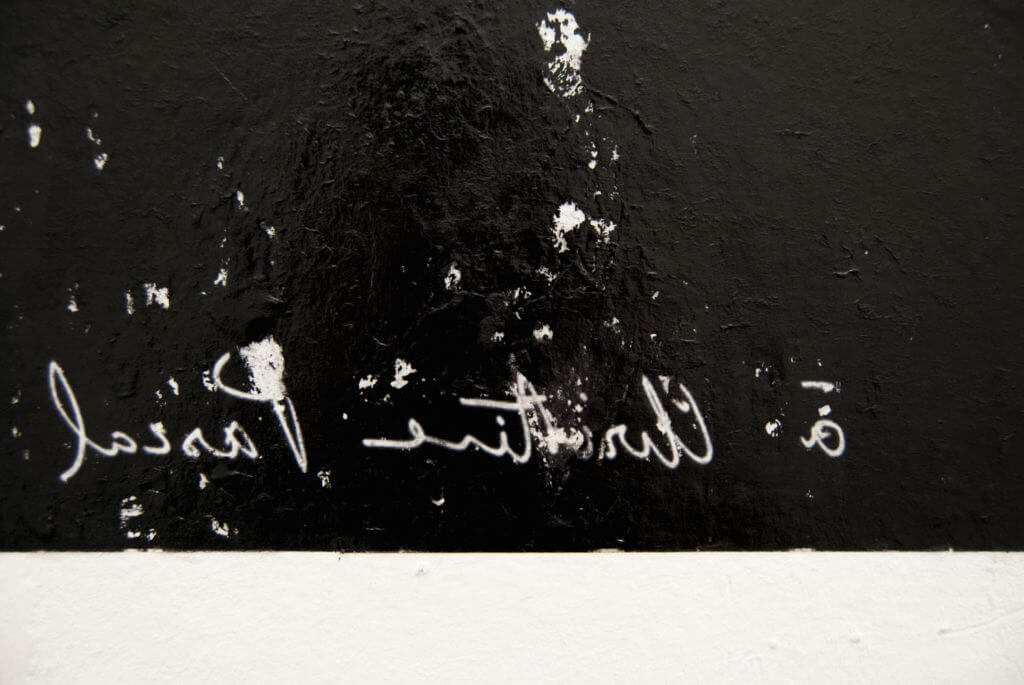 à Christine Pascal